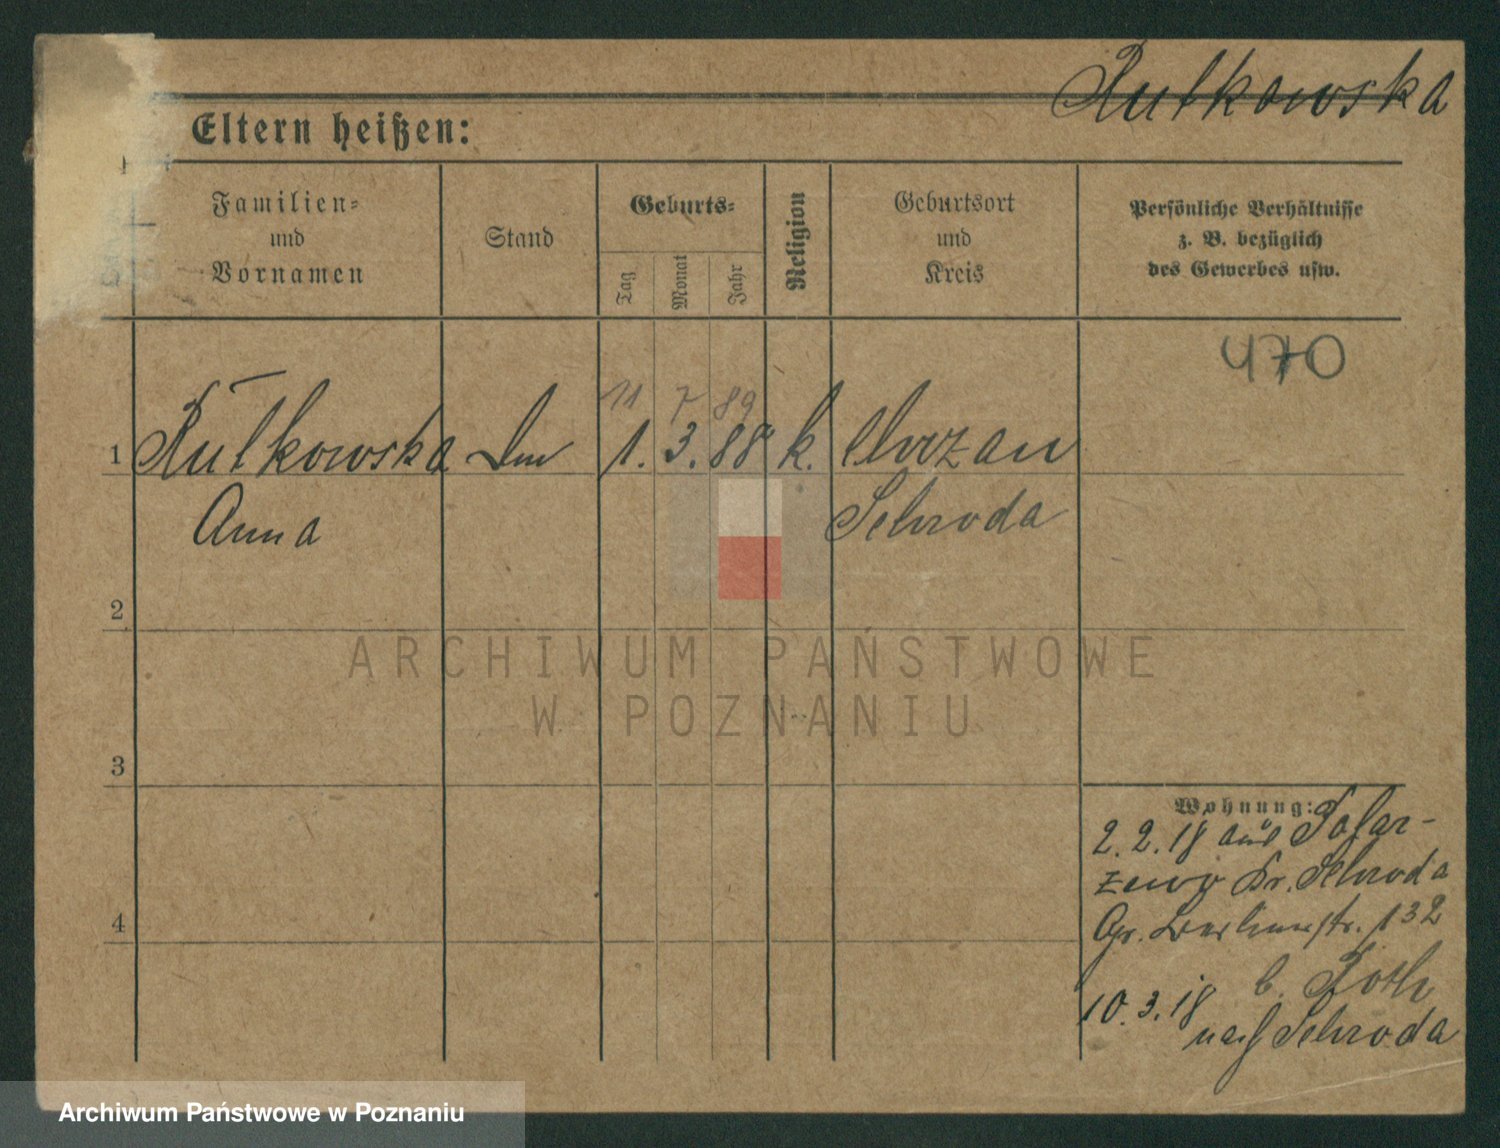 Rutkowska
Eltern heißen:
Familien-
und
Vornamen
Stand
Geburts-
Tag
Monat
Jahr
Religion
Geburtsort
und
Kreis
Persönliche Verhältnisse
z. B. bezüglich
des Gewerbes usw.
470
11 7 89
1 Rutkowska 1. 3. 88 k.
Anna Schroda
2
ARCHIWUM PAŃSTWOWE
W POZNANIU
3
Wohnung:
2.2.18 aus
Kr. Schroda
Gr. Berlinerstr. 132
4
b.
10.3.18
nach Schroda
Archiwum Państwowe w Poznaniu